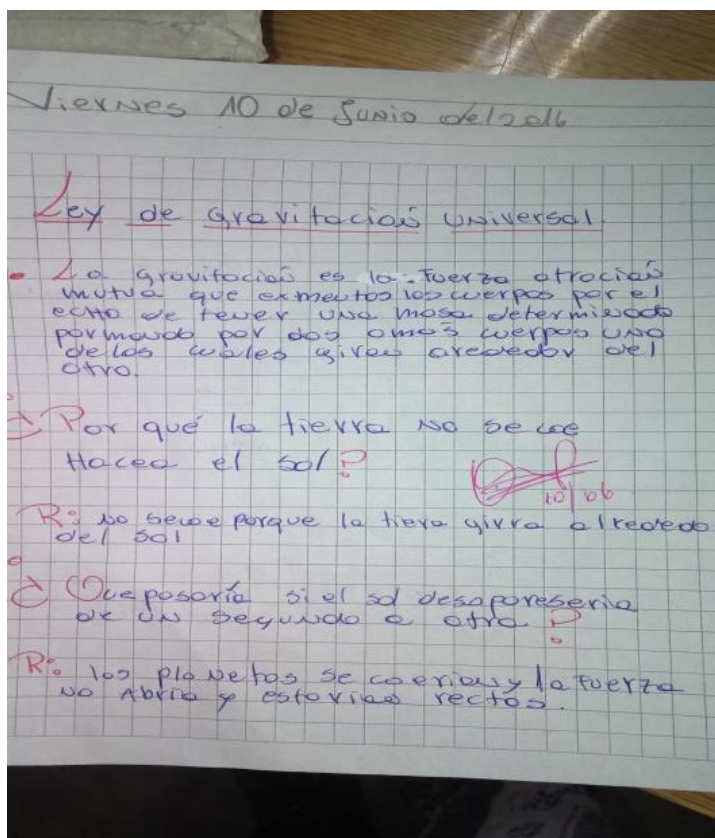 Viernes 10 de Junio del 2016
Ley de gravitación universal
La gravitación es la fuerza atrocion
mutua que exmentos los cuerpos por el
echo de tener una masa determinado
pormando por dos omas cuerpos uno
de los cuales giran arededor del
otro.
¿ Por qué la tierra no se cae
Hacea el sol?
10/06
R: no secae porque la tiera girra alrededo
del sol
¿ Que pasaría si el sol desaparesería
de un segundo a otro ?
R: los planetas se caerian y la fuerza
no Abria y estarian rectos.